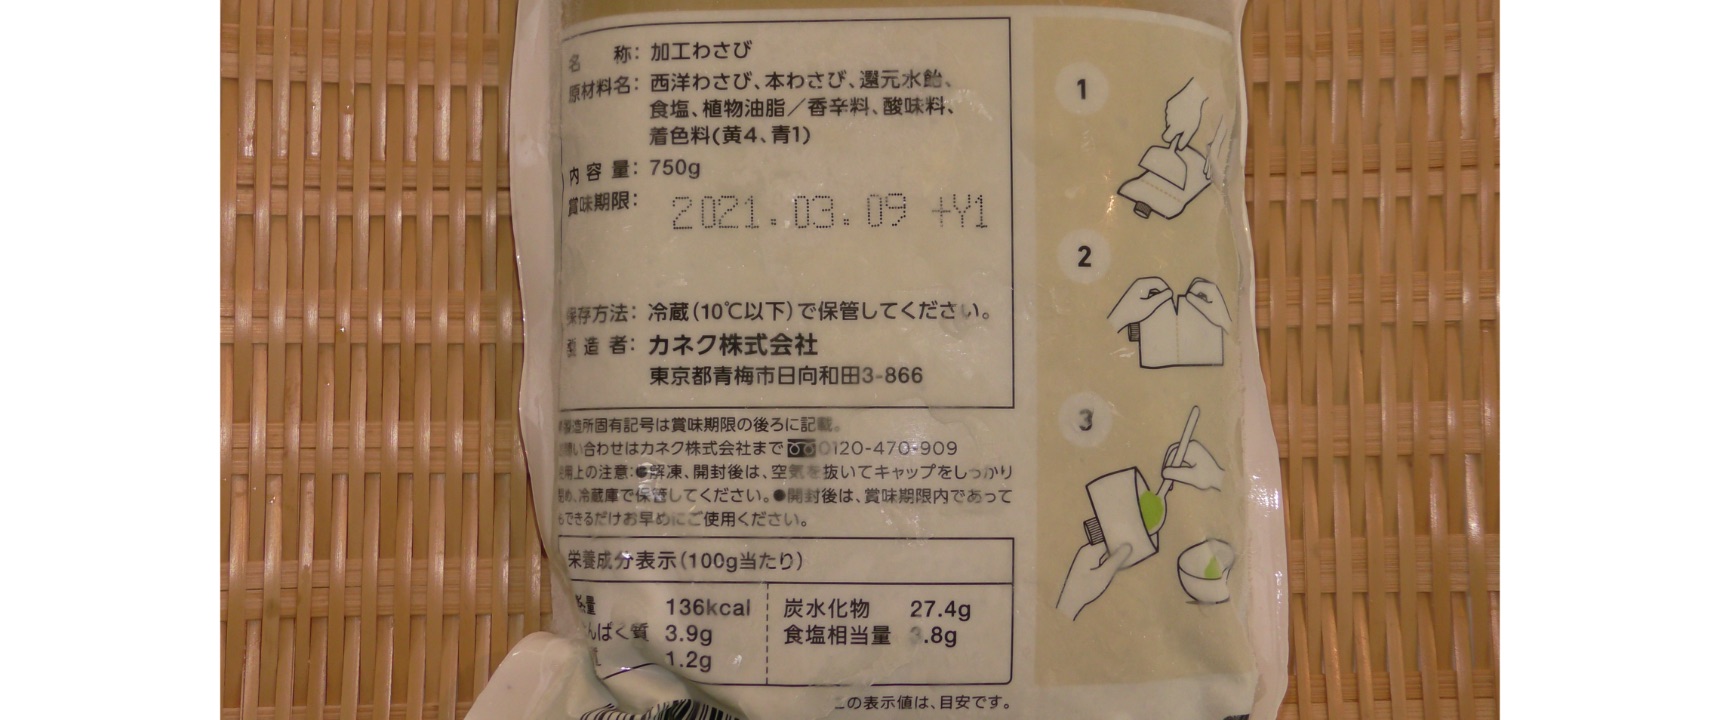 名 称: 加工わさび
原材料名: 西洋わさび、本わさび、還元水飴、
食塩、植物油脂／香辛料、酸味料、
着色料(黄4、青1)
内容量: 750g
賞味期限: 2021.03.09 +Y1
保存方法: 冷蔵(10℃以下)で保管してください。
製造者: カネク株式会社
東京都青梅市日向和田3-866
製造所固有記号は賞味期限の後ろに記載。
問い合わせはカネク株式会社まで 0120-470-909
使用上の注意:●解凍、開封後は、空気を抜いてキャップをしっかり
、冷蔵庫で保管してください。●開封後は、賞味期限内であって
もできるだけお早めにご使用ください。
栄養成分表示(100g当たり)
熱量 136kcal 炭水化物 27.4g
たんぱく質 3.9g 食塩相当量 3.8g
1.2g
この表示値は、目安です。
1
2
3